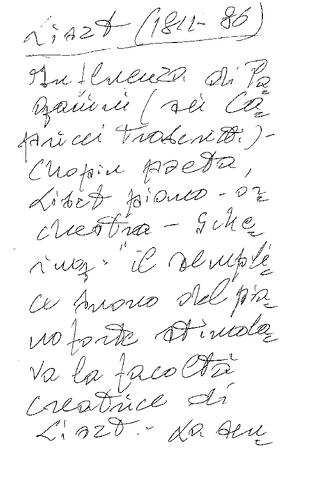 Liszt (1811-86)
Influenza di Pa=
ganini (sei Ca=
pricci trascritti) -
Chopin poeta,
Liszt piano-or=
chestra - Sche=
ring: "il sempli=
ce suono del pia=
noforte stimola=
va la facoltà
creatrice di
Liszt. - La sen=